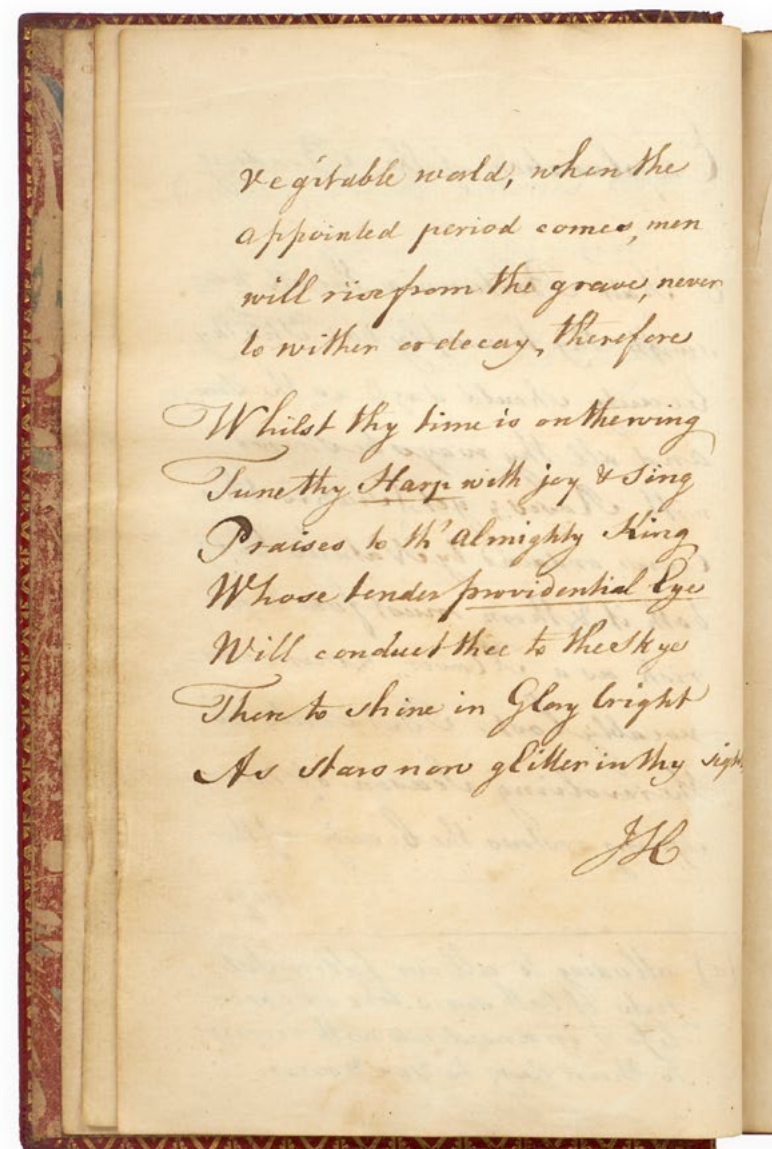 Vegitable world, when the
appointed period comes, men
will rise from the grave, never
to wither or decay, therefore
Whilst thy time is on the wing
Tune thy Harp with joy & Sing
Praises to th' Almighty King
Whose tender providential Eye
Will conduct thee to the Skye
There to shine in Glory bright
As stars now glitter in thy sight
JH